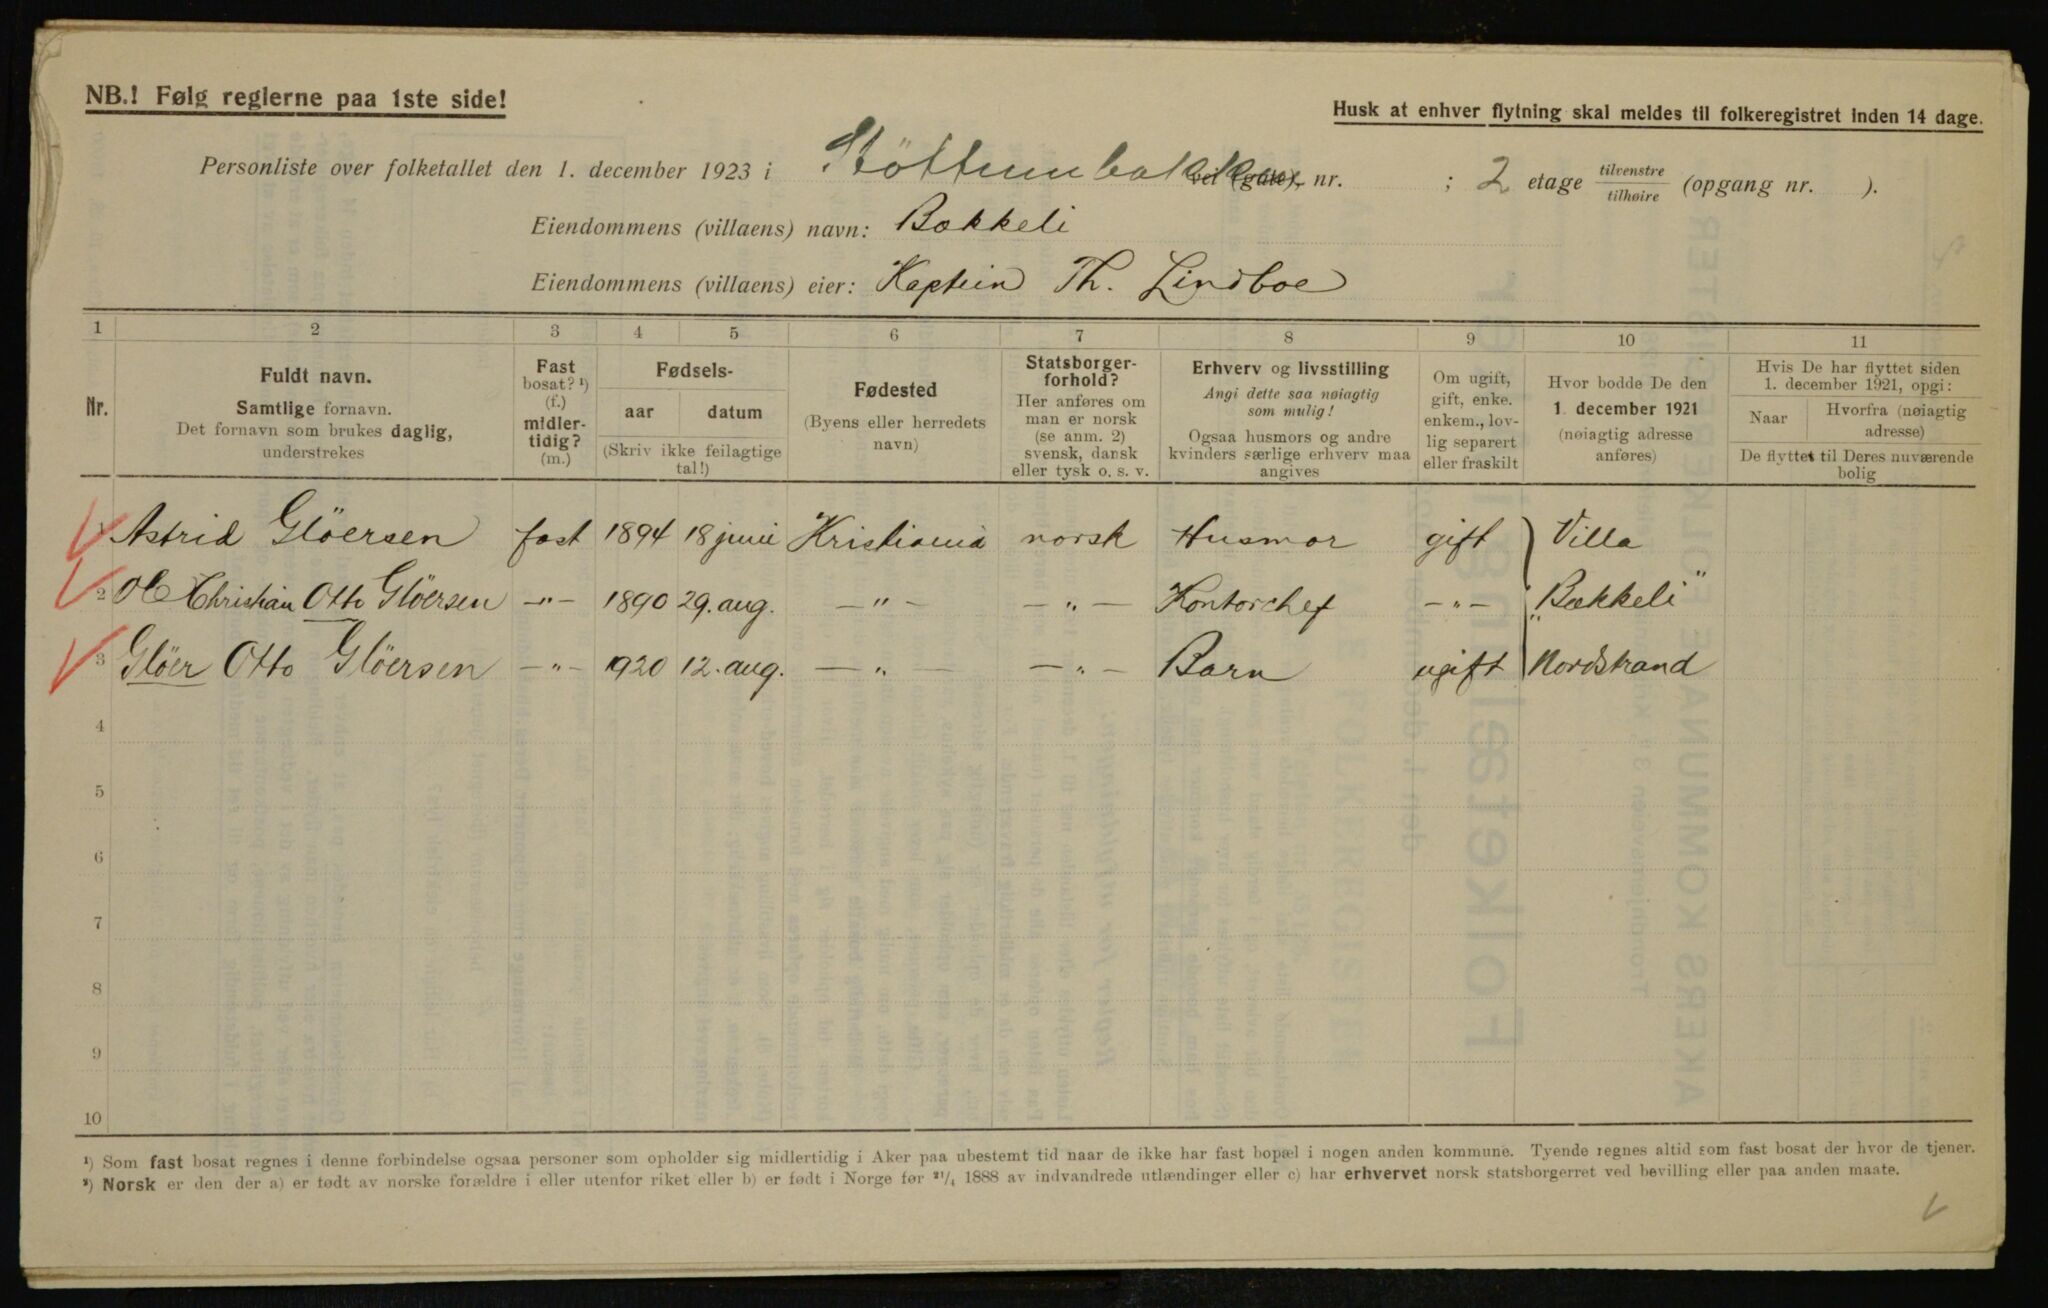 NB.! Følg reglerne paa 1ste side!
Husk at enhver flytning skal meldes til folkeregistret inden 14 dage.
Personliste over folketallet den 1. december 1923 i Støttumbakken vei (gate), nr. ; 2 etage tilvenstre tilhøire (opgang nr. ).
Eiendommens (villaens) navn: Bækkeli
Eiendommens (villaens) eier: Kaptein Th. Lindboe
1 2 3 4 5 6 7 8 9 10 11
Nr.
Fuldt navn.
Samtlige fornavn.
Det fornavn som brukes daglig,
understrekes
Fast
bosat? ¹)
(f.)
midler-
tidig?
(m.)
Fødsels-
aar datum
(Skriv ikke feilagtige
tal!)
Fødested
(Byens eller herredets
navn)
Statsborger-
forhold?
Her anføres om
man er norsk
(se anm. 2)
svensk, dansk
eller tysk o. s. v.
Erhverv og livsstilling
Angi dette saa nøiagtig
som mulig!
Ogsaa husmors og andre
kvinders særlige erhverv maa
angives
Om ugift,
gift, enke.
enkem., lov-
lig separert
eller fraskilt
Hvor bodde De den
1. december 1921
(nøiagtig adresse
anføres)
Hvis De har flyttet siden
1. december 1921, opgi:
Naar
Hvorfra (nøiagtig
adresse)
De flyttet til Deres nuværende
bolig
1 Astrid Glöersen fast 1894 18 juni Kristiania norsk Husmor gift Villa
2 Ole Christian Otto Glöersen —"— 1890 29. aug. —"— —"— Kontorchef —"— „Bækkeli"
3 Glöer Otto Glöersen —"— 1920 12. aug. —"— —"— Barn ugift Nordstrand
4
5
6
7
8
9
10
¹) Som fast bosat regnes i denne forbindelse ogsaa personer som opholder sig midlertidig i Aker paa ubestemt tid naar de ikke har fast bopæl i nogen anden kommune. Tyende regnes altid som fast bosat der hvor de tjener.
²) Norsk er den der a) er født av norske forældre i eller utenfor riket eller b) er født i Norge før 21/4 1888 av indvandrede utlændinger eller c) har erhvervet norsk statsborgerret ved bevilling eller paa anden maate.